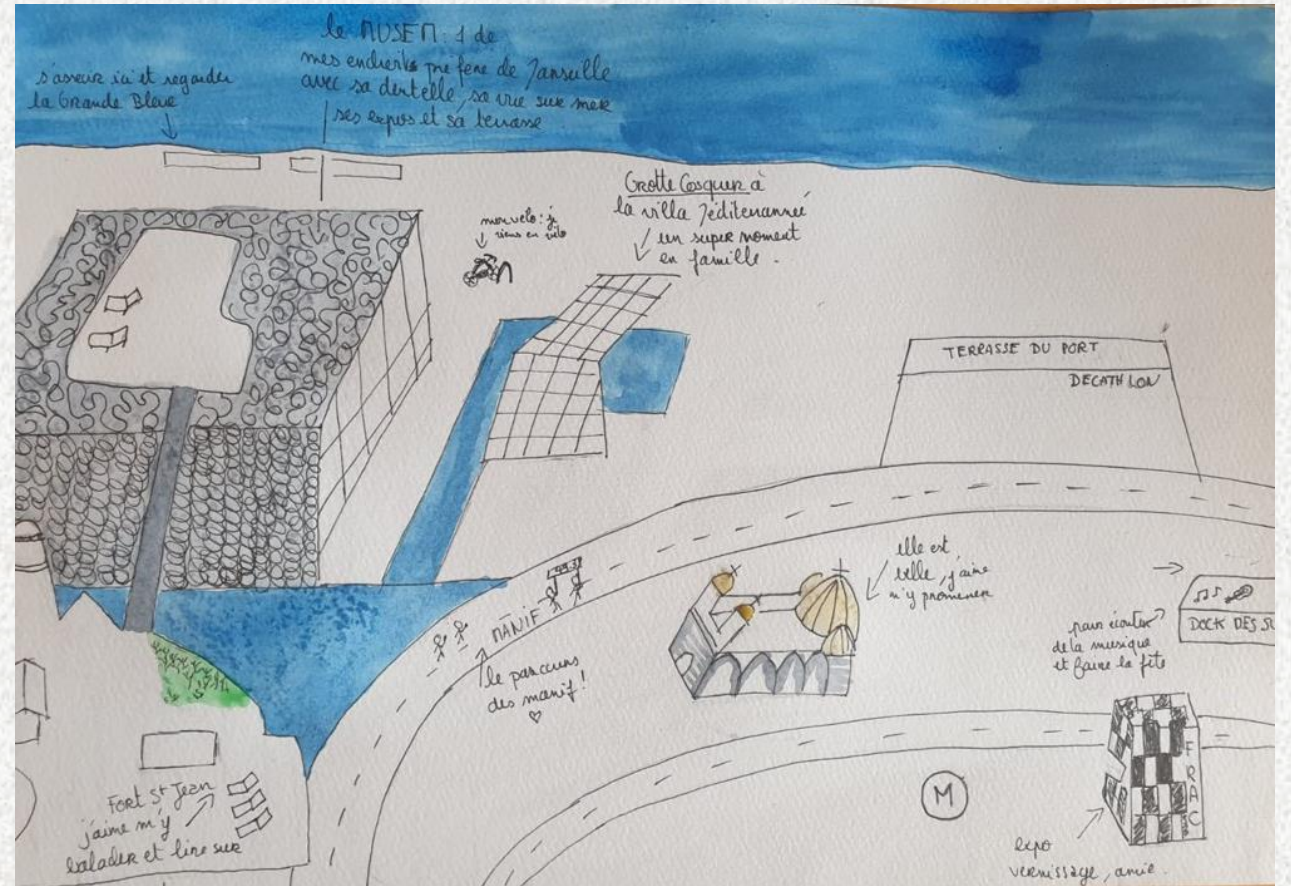 s'asseoir ici et regarder
la Grande Bleue
le MUSEM : 1 de
mes endroits préféré de Marseille
avec sa dentelle, sa vue sur mer
ses expos et sa terrasse
mon vélo : je
viens en vélo
Grotte Cosquer à
la villa Méditerranée
un super moment
en famille.
TERRASSE DU PORT
DECATHLON
MANIF
le parcours
des manif !
elle est
belle, j'aime
m'y promener
pour écouter
de la musique
et faire la fête
DOCK DES SU
FRAC
M
Fort St Jean
j'aime m'y
balader et lire sur
expo
vernissage, amie.